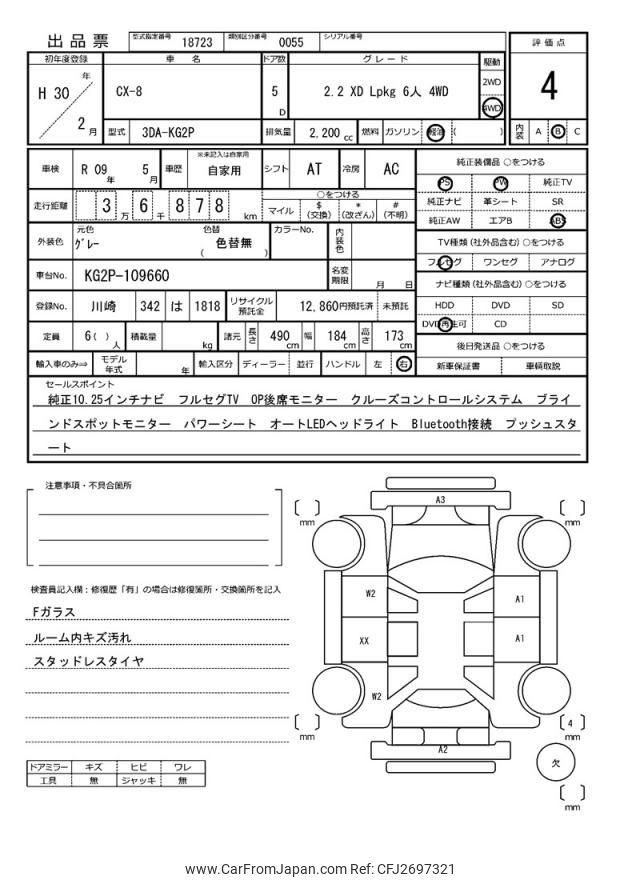 出品票 型式指定番号 18723 類別区分番号 0055 シリアル番号
初年度登録 車名 ドア数 グレード 駆動 評価点
H 30 年 CX-8 5 D 2.2 XD Lpkg 6人 4WD 2WD 4WD 4
2 月 型式 3DA-KG2P 排気量 2,200 cc 燃料 ガソリン 軽油 ( ) 内装 A B C
車検 R 09 年 5 月 車歴 ※未記入は自家用 自家用 シフト AT 冷房 AC 純正装備品 ○をつける
PS PW 純正TV
走行距離 3 万 6 千 8 7 8 km ○をつける 純正ナビ 革シート SR
マイル $ (交換) * (改ざん) # (不明) 純正AW エアB ABS
外装色 元色 グレー 色替 ( 色替無 ) カラーNo. 内装色 TV種類 (社外品含む) ○をつける
フルセグ ワンセグ アナログ
車台No. KG2P-109660 名変期限 月 日 ナビ種類 (社外品含む) ○をつける
登録No. 川崎 342 は 1818 リサイクル預託金 12,860円預託済 未預託 HDD DVD SD
DVD再生可 CD
定員 6( ) 人 積載量 kg 諸元 長さ 490 cm 幅 184 cm 高さ 173 cm 後日発送品 ○をつける
輸入車のみ⇒ モデル年式 年 輸入区分 ディーラー 並行 ハンドル 左 右 新車保証書 車輌取説
セールスポイント
純正10.25インチナビ フルセグTV OP後席モニター クルーズコントロールシステム ブライ
ンドスポットモニター パワーシート オートLEDヘッドライト Bluetooth接続 プッシュスタ
ート
注意事項・不具合箇所
検査員記入欄：修復歴「有」の場合は修復箇所・交換箇所を記入
Fガラス
ルーム内キズ汚れ
スタッドレスタイヤ
ドアミラー キズ ヒビ ワレ
工具 無 ジャッキ 無
A3
[ ] mm
[ ] mm
W2
A1
XX
A1
W2
[ ] mm
[ 4 ] mm
A2
欠
[ ] mm
www.CarFromJapan.com Ref: CFJ2697321